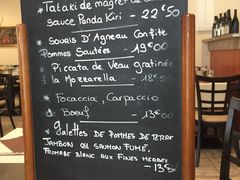 *Tataki de magret de
sauce Panda Kiri - 22€50
* Souris D'Agneau Confite
Pommes Sautées - 19€00
* Piccata de Veau gratinée
à la Mozzarella - 18€50
* Focaccia, Carpaccio
d' Boeuf - 13€00
* galettes de Pommes de terre
Jambon ou Saumon Fumé,
Fromage blanc aux fines herbes
- 13€50